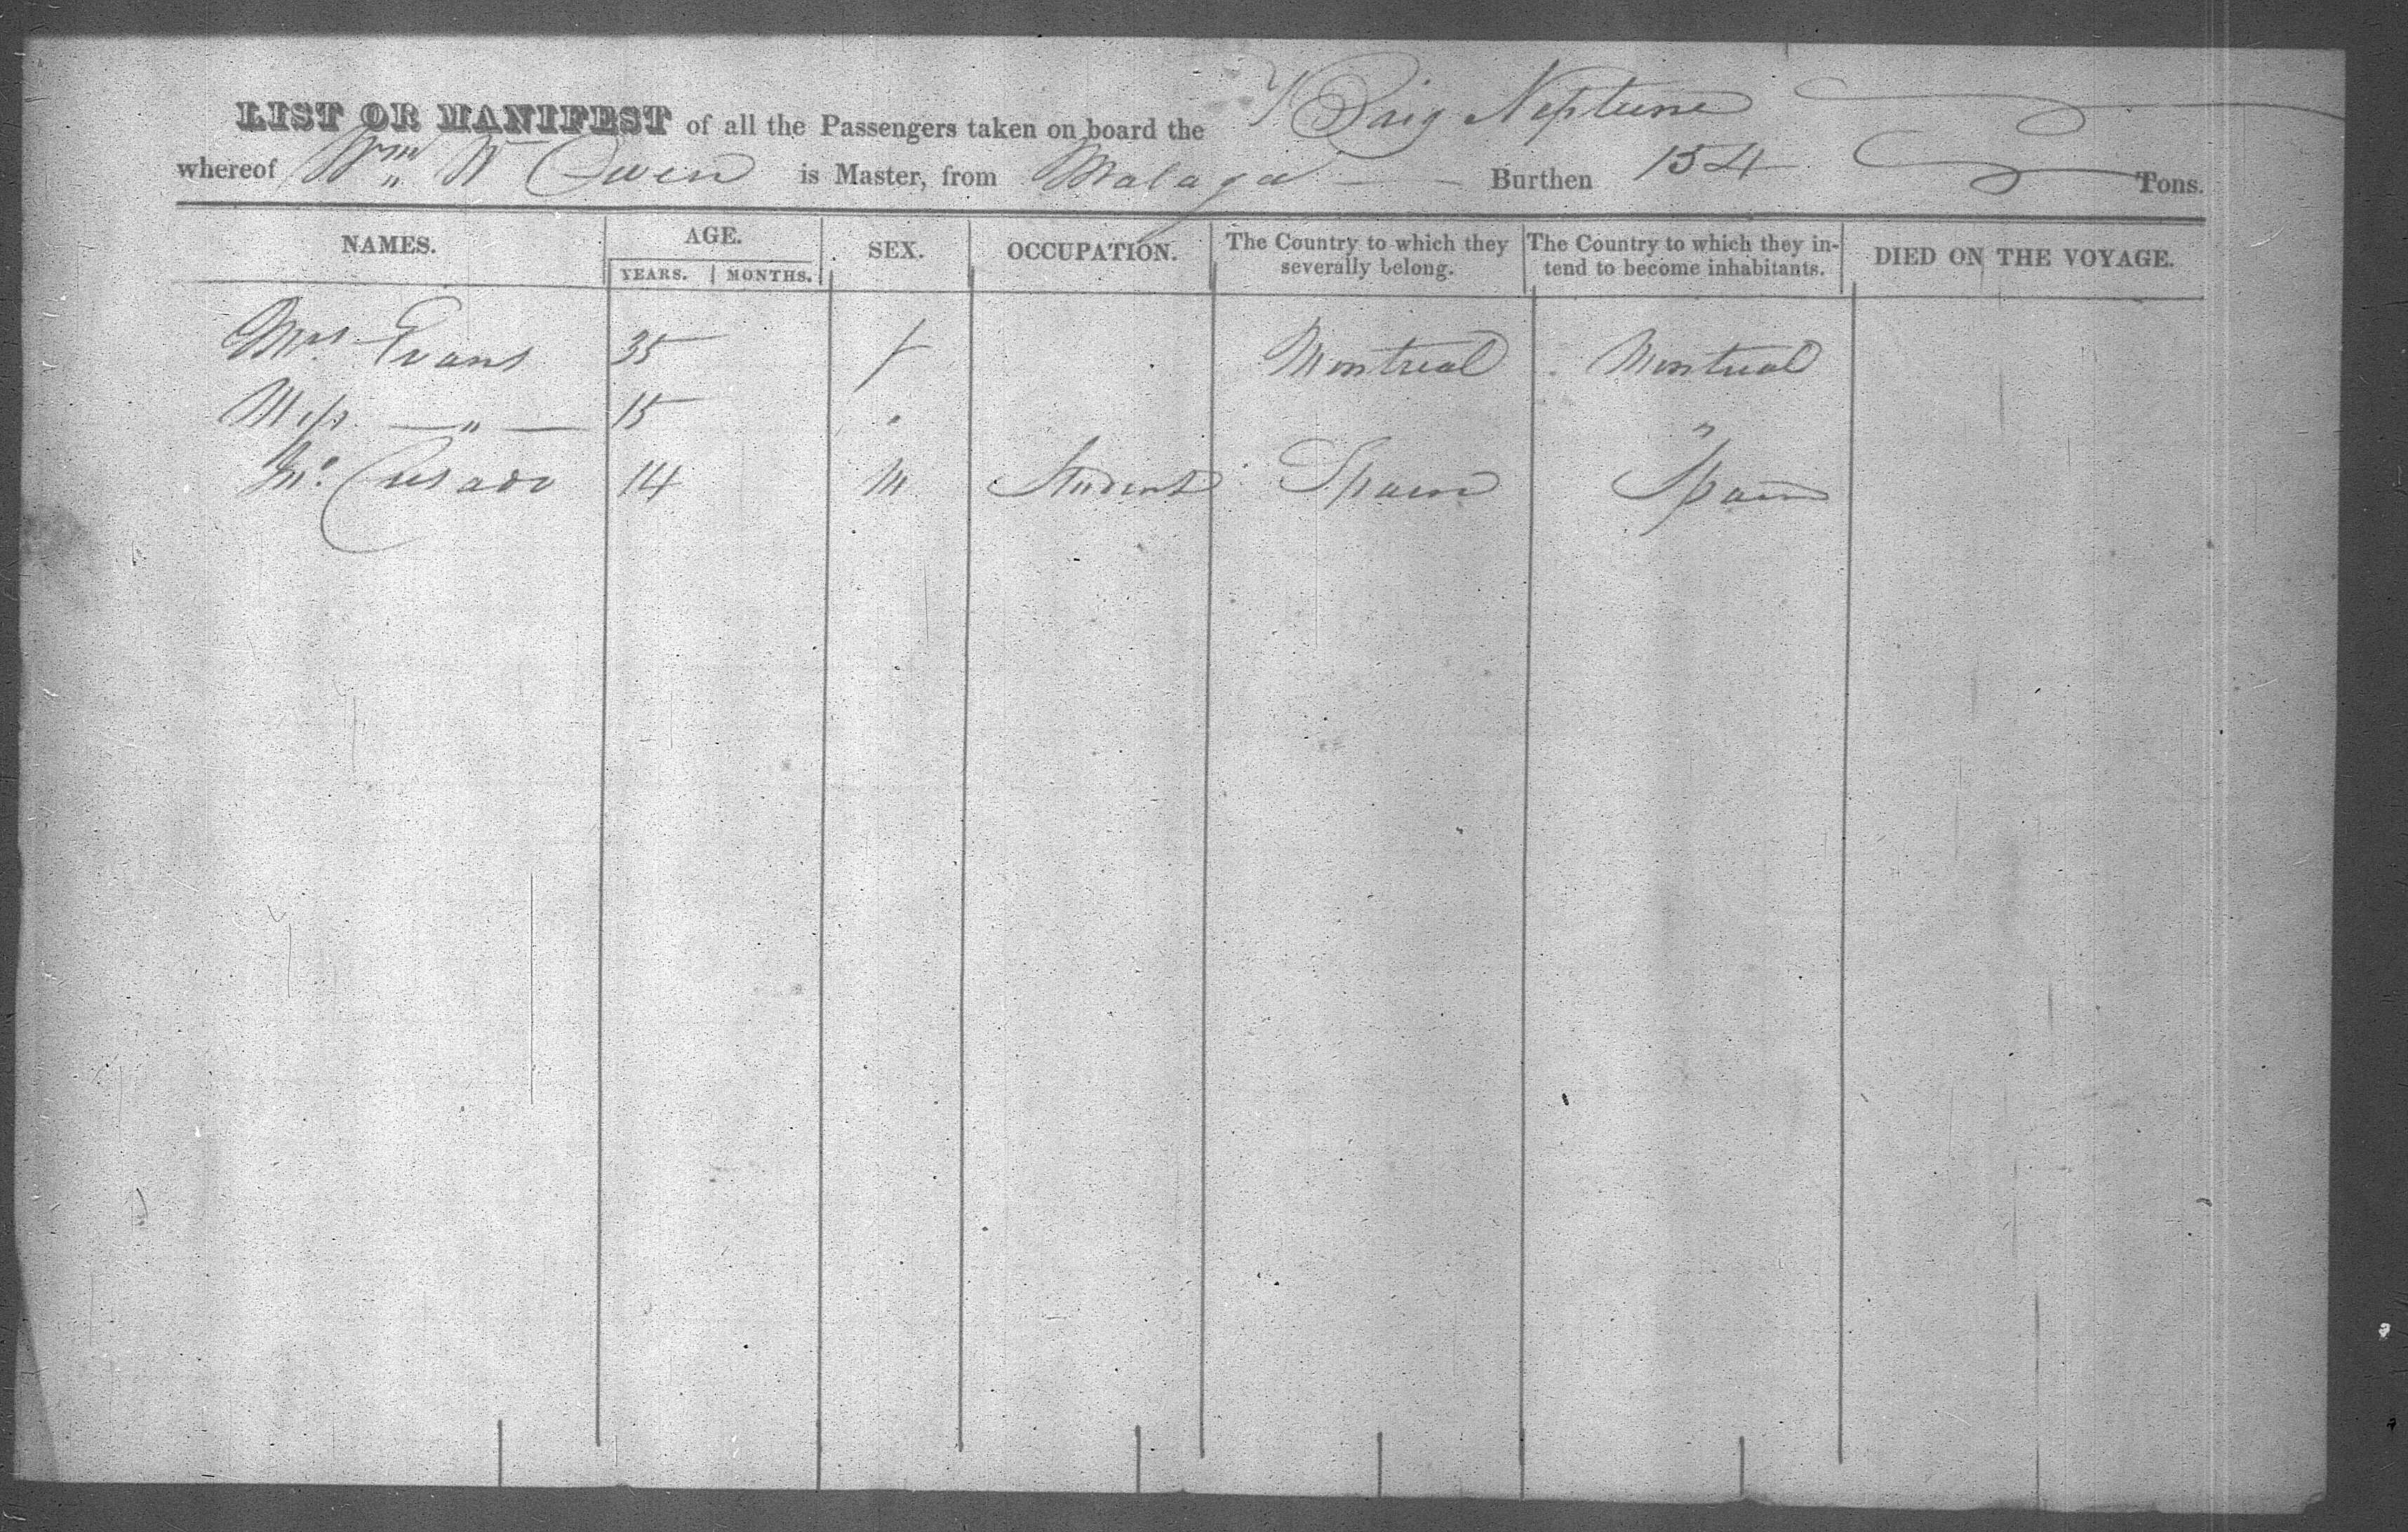 LIST OR MANIFEST of all the Passengers taken on board the Brig Neptune
whereof Wm W Owen is Master, from Malaga Burthen 154 Tons.
NAMES. AGE. SEX. OCCUPATION. The Country to which they severally belong. The Country to which they in-tend to become inhabitants. DIED ON THE VOYAGE.
YEARS. MONTHS.
Mrs. Evans 35 f Montreal Montreal
Miss — " — 15 "
14 M Student Spain Spain